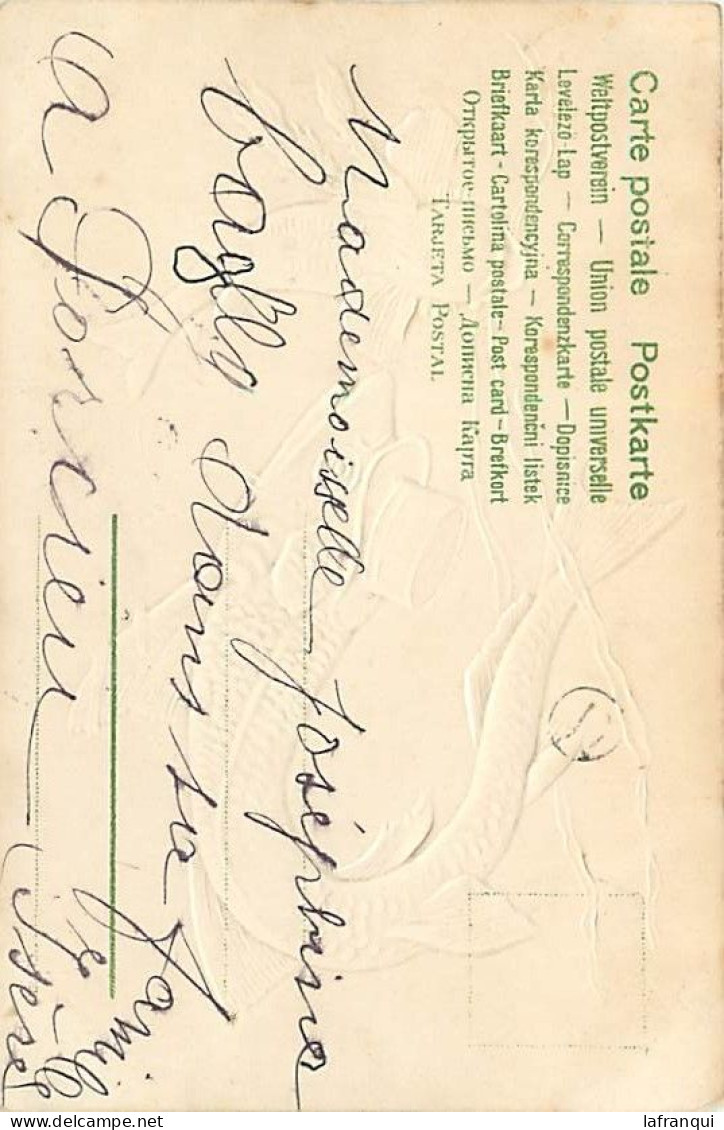 Carte postale Postkarte
Weltpostverein — Union postale universelle
Levelező-Lap — Correspondenzkarte — Dopisnice
Karta korespondencyjna — Korespondenční listek
Briefkaart - Cartolina postale - Post card - Brefkort
Открытое-письмо — Дописна Карта
TARJETA POSTAL
Mademoiselle Joséphine
dans sa famille
a Porcieu
Isère
lafranqui